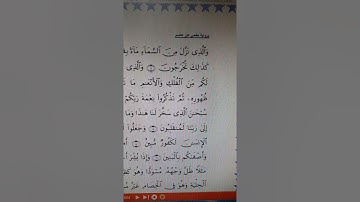 وَٱلَّذِى نَزَّلَ مِنَ ٱلسَّمَآءِ مَآءًۢ
كَذَٰلِكَ تُخْرَجُونَ ۝ وَٱلَّذِى
لَكُم مِّنَ ٱلْفُلْكِ وَٱلْأَنْعَٰمِ مَا
ظُهُورِهِۦ ثُمَّ تَذْكُرُوا۟ نِعْمَةَ رَبِّكُمْ
سُبْحَٰنَ ٱلَّذِى سَخَّرَ لَنَا هَٰذَا وَمَا
إِلَىٰ رَبِّنَا لَمُنقَلِبُونَ ۝ وَجَعَلُوا۟
ٱلْإِنسَٰنَ لَكَفُورٌ مُّبِينٌ ۝
وَأَصْفَىٰكُم بِٱلْبَنِينَ ۝ وَإِذَا بُشِّرَ
مَثَلًا ظَلَّ وَجْهُهُۥ مُسْوَدًّا وَهُوَ
ٱلْحِلْيَةِ وَهُوَ فِى ٱلْخِصَامِ غَيْرُ